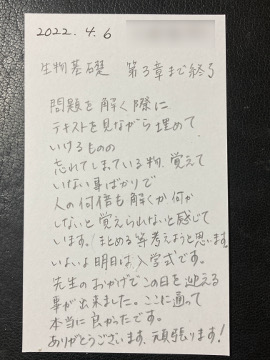 2022.4.6
生物基礎 第3章まで終了
問題を解く際に
テキストを見ながら埋めて
いけるものの
忘れてしまっている事、覚えて
いない事ばかりで
人の何倍も解くか何か
しないと覚えられないと感じて
います。(まとめる等考えようと思います。
いよいよ明日は入学式です。
先生のおかげでこの日を迎える
事が出来ました。ここに通って
本当に良かったです。
ありがとうございます。頑張ります!